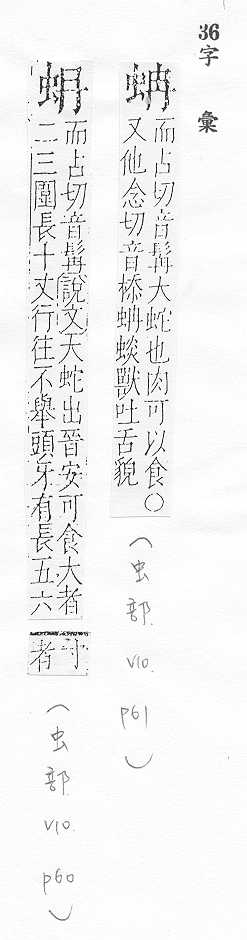 36字彙
蚺 而占切音髯大蛇也肉可以食〇
又他念切音㮇蚺蛂獸吐舌貌
(虫部 V10. P61)
蚦 而占切音髯說文天蛇出晉安可食大者
二三圍長十丈行往不舉頭牙有長五六
寸者
(虫部 V10 P60)